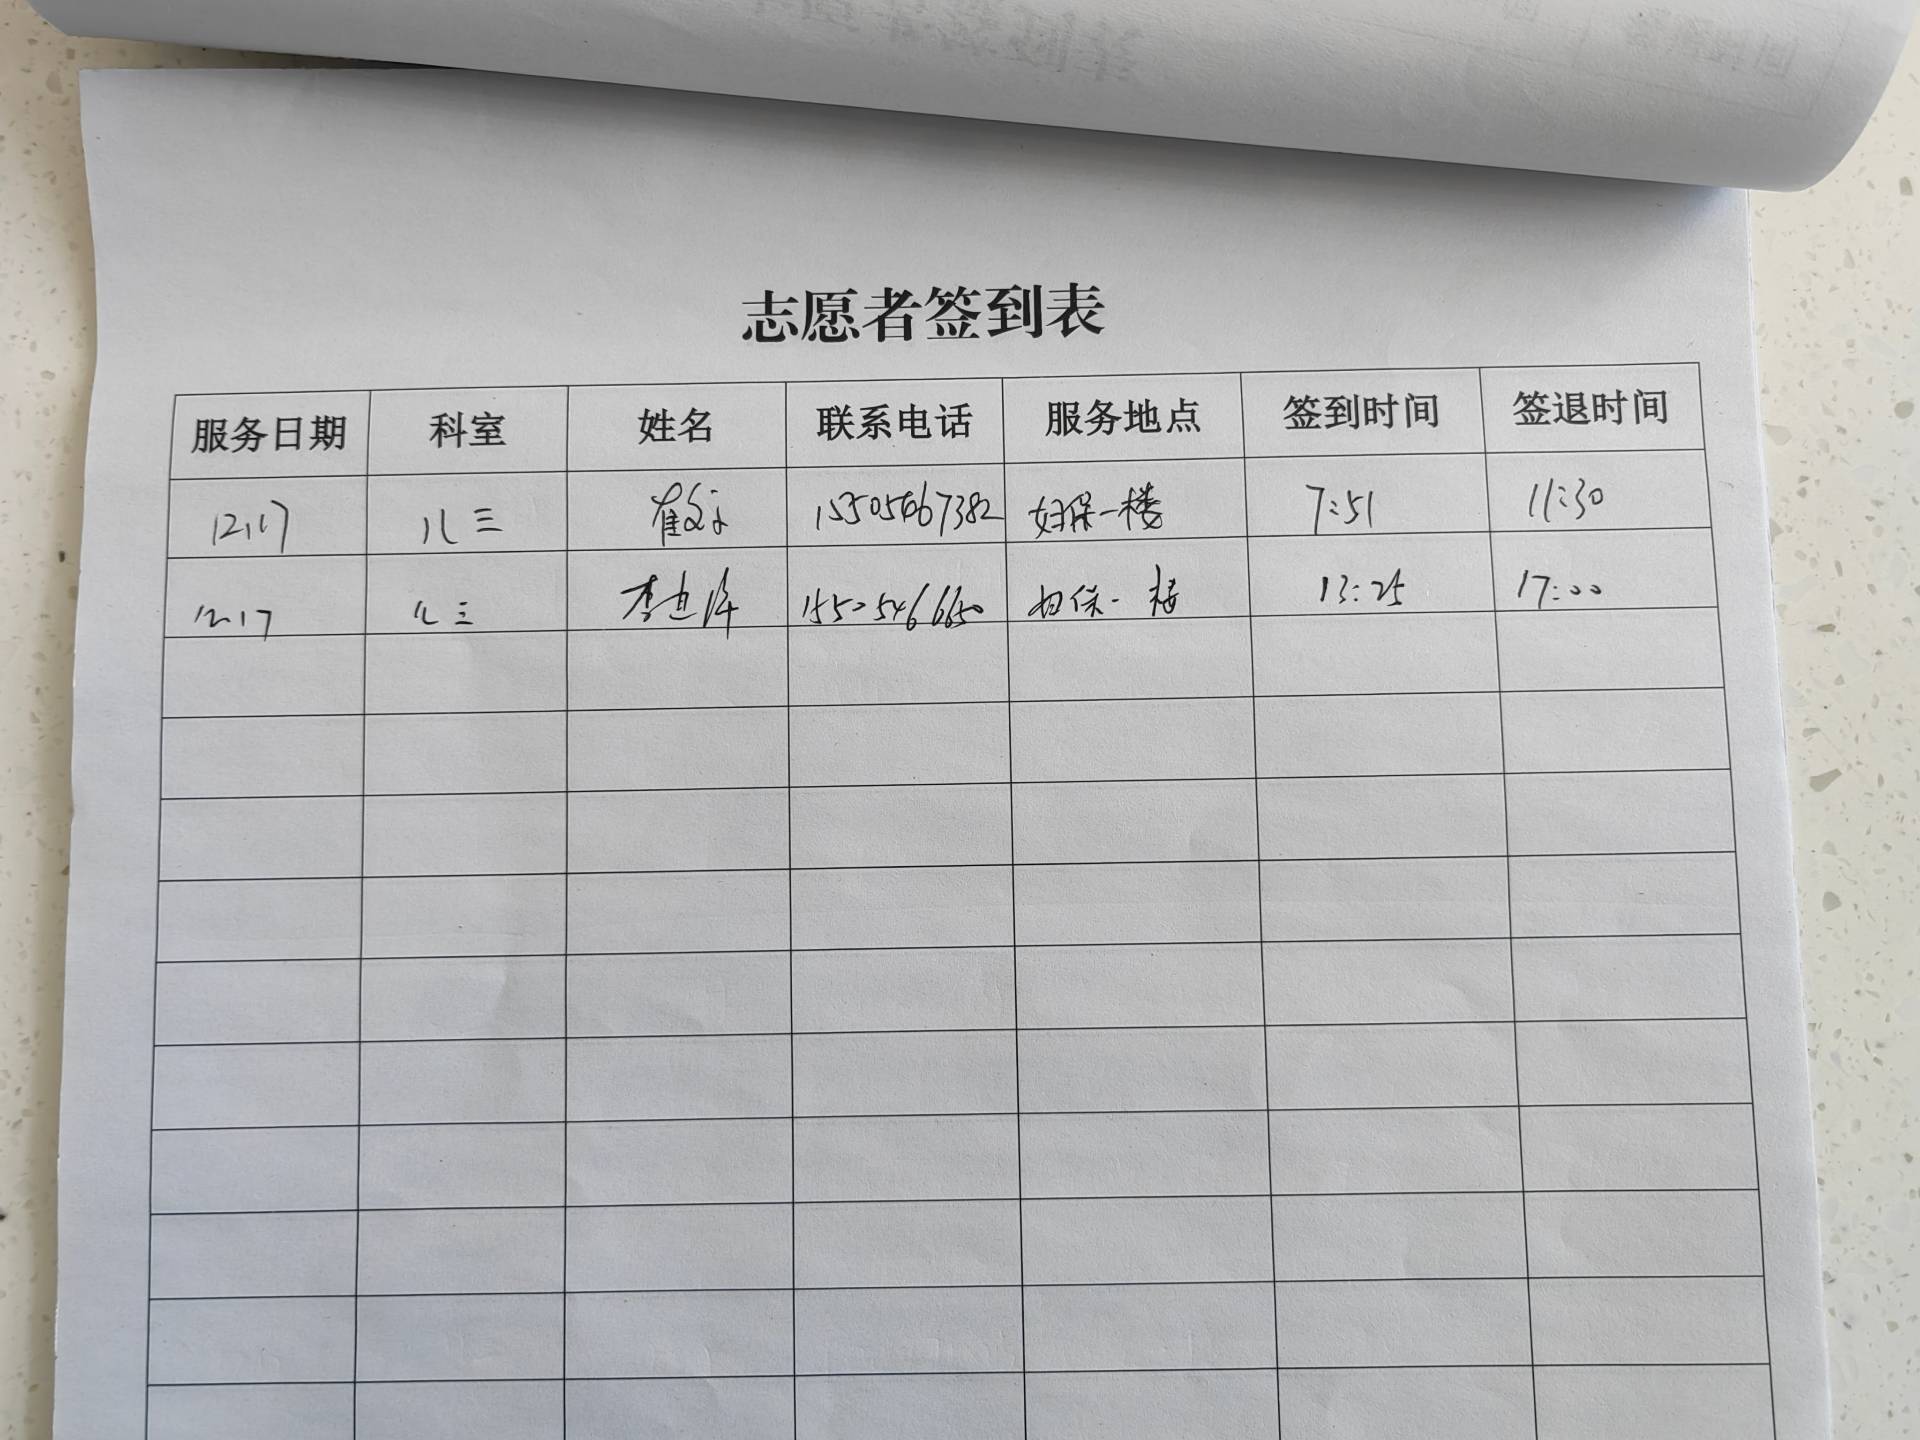 志愿者签到表
服务日期 科室 姓名 联系电话 服务地点 签到时间 签退时间
12.17 儿三 崔 妇保一楼 7:51 11:30
12.17 儿三 李 妇保一楼 13:25 17:00